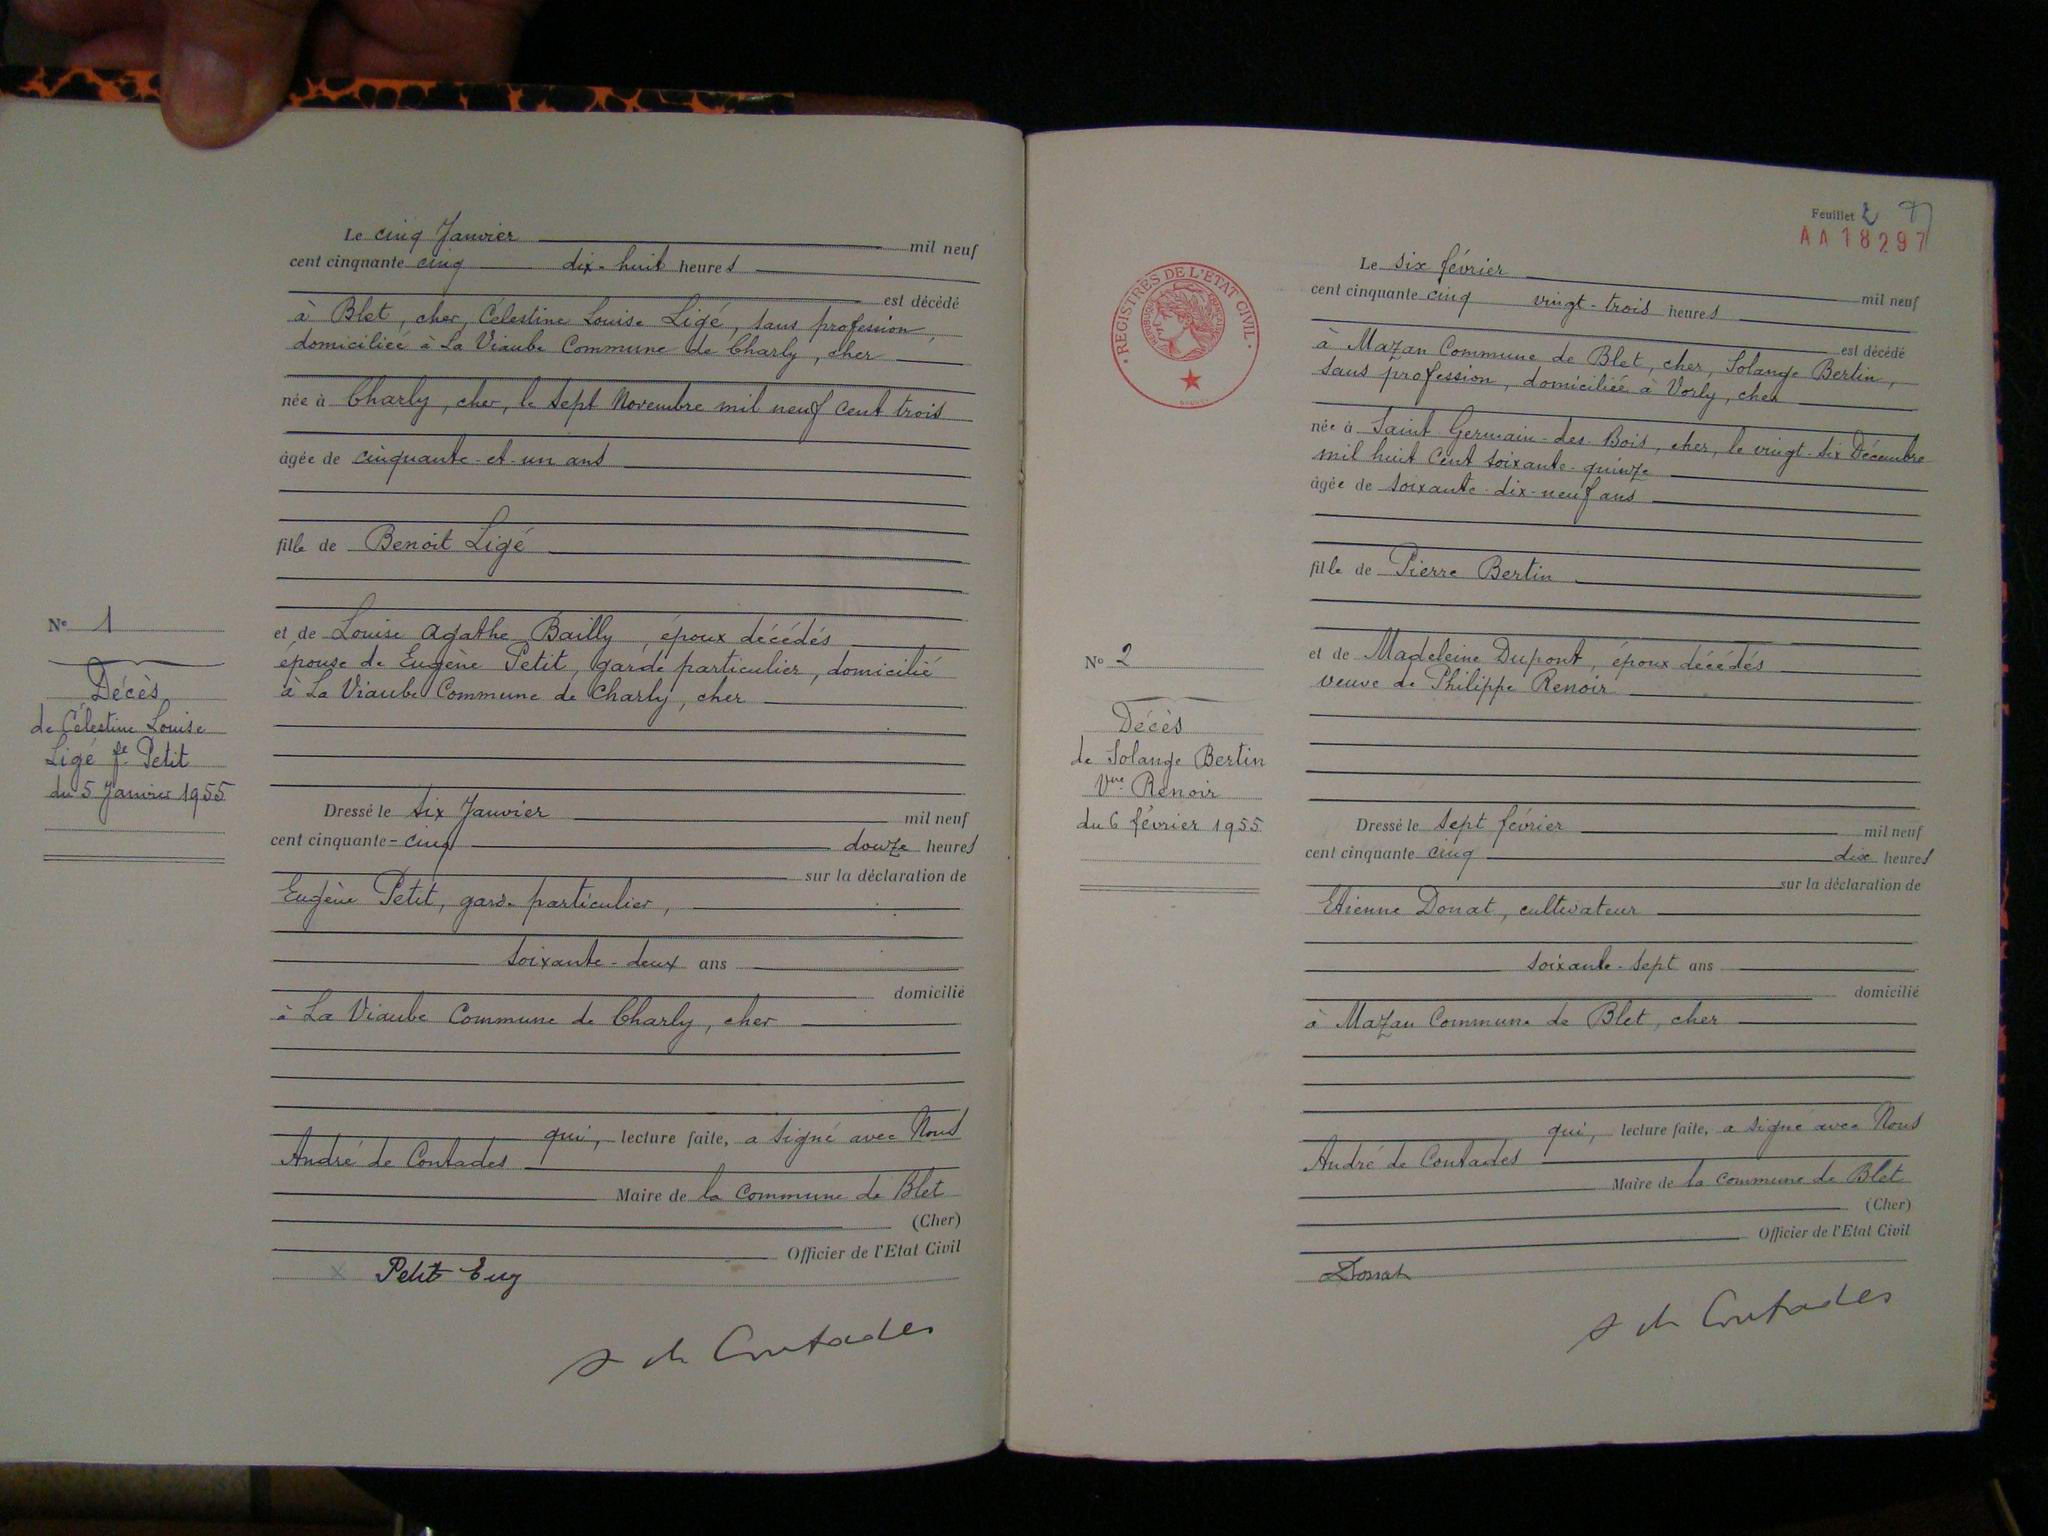 Le cinq Janvier mil neuf
cent cinquante cinq dix-huit heures
est décédé
à Blet, cher, Célestine Louise Ligé, sans profession,
domiciliée à La Viaube Commune de Charly, cher
née à Charly, cher, le sept Novembre mil neuf cent trois
âgée de cinquante-et-un ans
fille de Benoit Ligé
et de Louise Agathe Bailly, époux décédés
épouse de Eugène Petit, garde particulier, domicilié
à La Viaube Commune de Charly, cher
N° 1
Décès
de Célestine Louise
Ligé fe Petit
du 5 Janvier 1955
Dressé le six Janvier mil neuf
cent cinquante-cinq douze heures
sur la déclaration de
Eugène Petit, garde particulier,
soixante-deux ans
domicilié
à La Viaube Commune de Charly, cher
qui, lecture faite, a signé avec Nous
André de Contades
Maire de la commune de Blet
(Cher)
Officier de l'Etat Civil
Petit Eug
A de Contades
Feuillet 2
AA18297
REGISTRES DE L'ÉTAT CIVIL
REPUBLIQUE FRANÇAISE
Le six février mil neuf
cent cinquante cinq vingt-trois heures
est décédé
à Mazan Commune de Blet, cher, Solange Bertin,
sans profession, domiciliée à Vorly, cher
née à Saint-Germain-des-Bois, cher, le vingt-six Décembre
mil huit cent soixante-quinze
âgée de soixante-dix-neuf ans
fille de Pierre Bertin
et de Madeleine Dupont, époux décédés
veuve de Philippe Renoir
N° 2
Décès
de Solange Bertin
Vve Renoir
du 6 février 1955
Dressé le sept février mil neuf
cent cinquante cinq dix heures
sur la déclaration de
Etienne Donat, cultivateur
soixante-sept ans
domicilié
à Mazan Commune de Blet, cher
qui, lecture faite, a signé avec Nous
André de Contades
Maire de la commune de Blet
(Cher)
Officier de l'Etat Civil
Donat
A de Contades